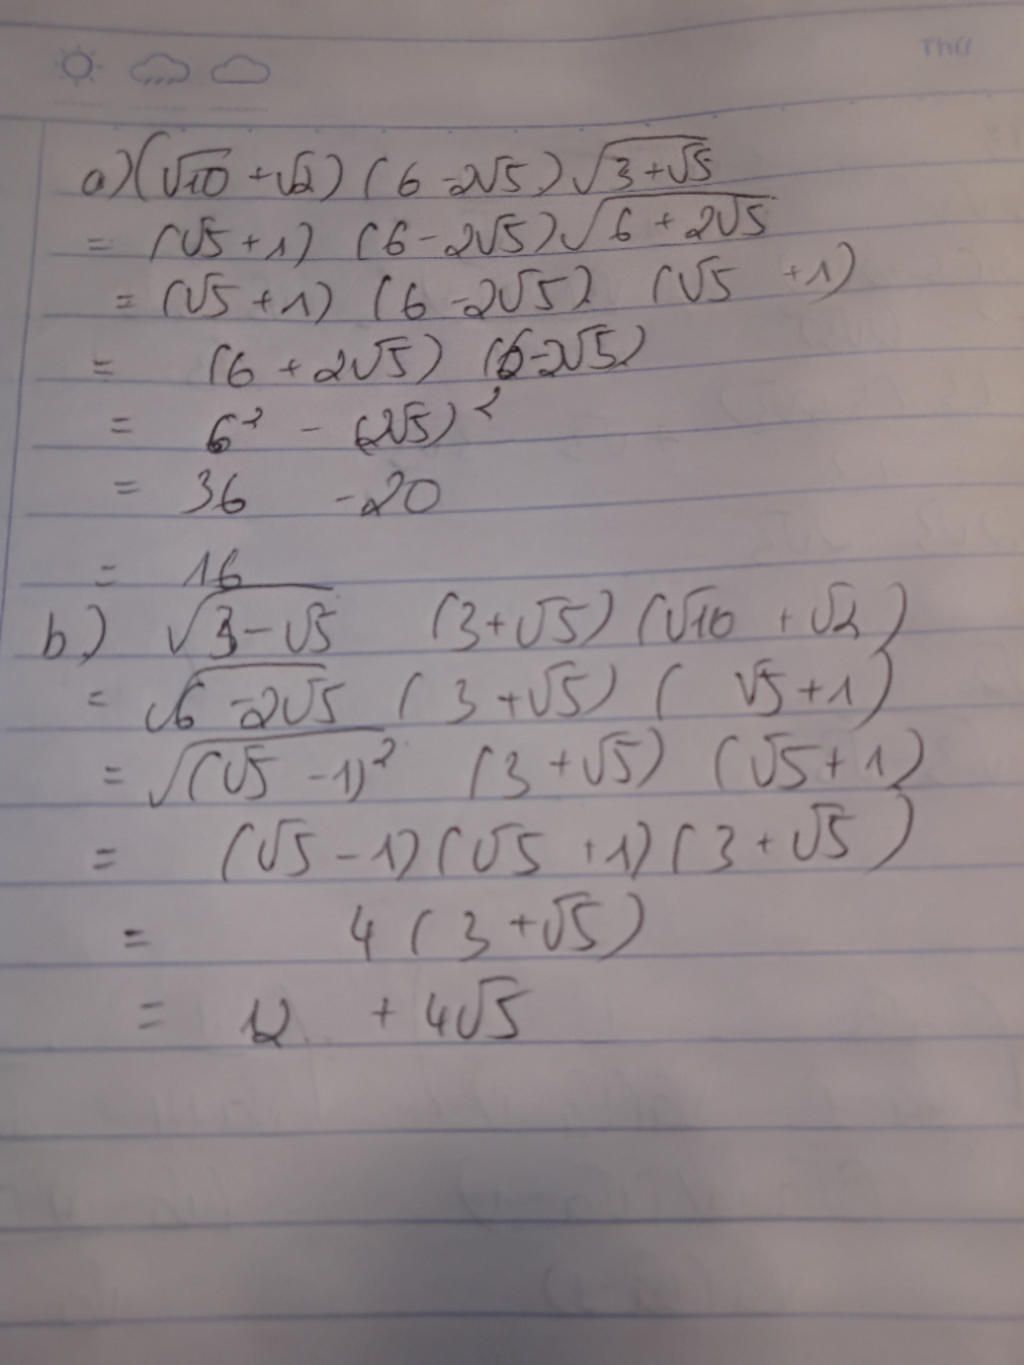 Thứ
a) (√10 + √2) (6 - 2√5) √(3 + √5)
= (√5 + 1) (6 - 2√5) √(6 + 2√5)
= (√5 + 1) (6 - 2√5) (√5 + 1)
= (6 + 2√5) (6 - 2√5)
= 6² - (2√5)²
= 36 - 20
= 16
b) √(3 - √5) (3 + √5) (√10 + √2)
= √(6 - 2√5) (3 + √5) (√5 + 1)
= √((√5 - 1)²) (3 + √5) (√5 + 1)
= (√5 - 1) (√5 + 1) (3 + √5)
= 4 (3 + √5)
= 12 + 4√5